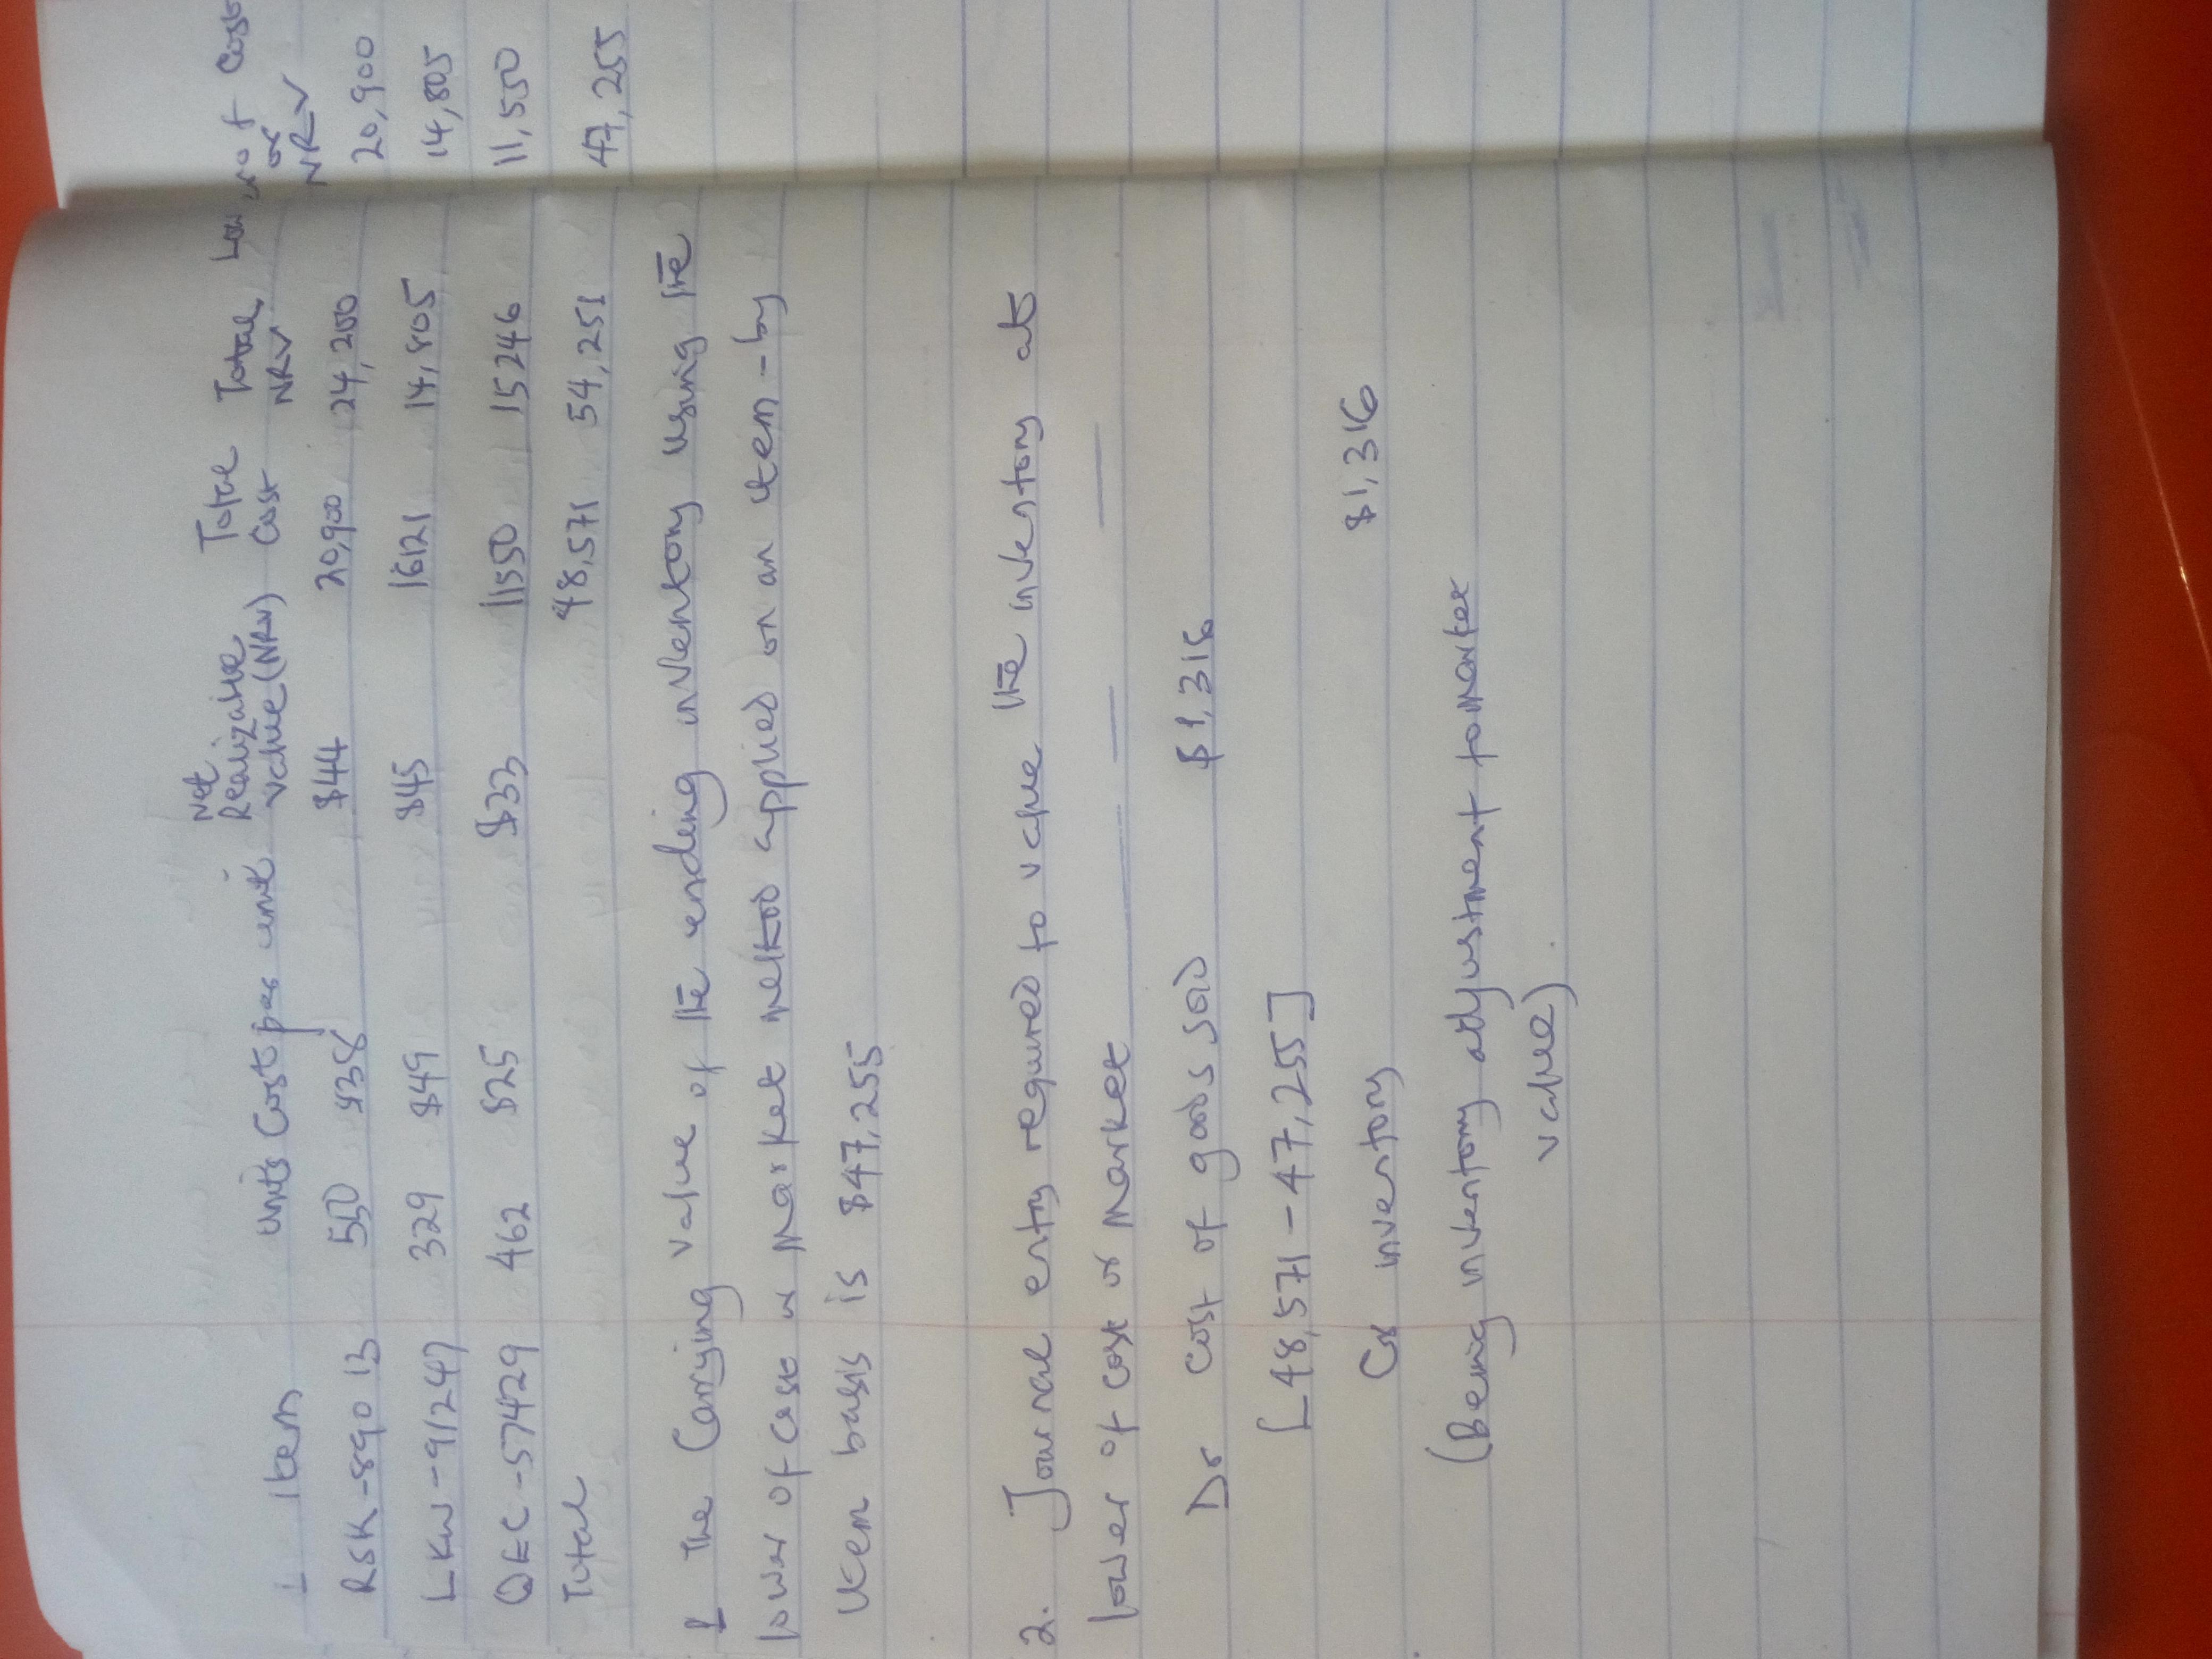 1 Item Units Cost per unit Net Realizable value (NRV) Total Cost Total NRV Lower of Cost or NRV
RSK-89013 550 $38 $44 20,900 24,200 20,900
LKW-91247 329 $49 $45 16121 14,805 14,805
QEC-57429 462 $25 $33 11550 15246 11,550
Total 48,571 54,251 47,255
1 The Carrying value of the ending inventory using the
lower of cost or Market method applied on an item-by
item basis is $47,255
2. Journal entry required to value the inventory at
lower of cost or Market
Dr Cost of goods sold $1,316
[48,571-47,255]
Cr inventory $1,316
(Being inventory adjustment to market
value)